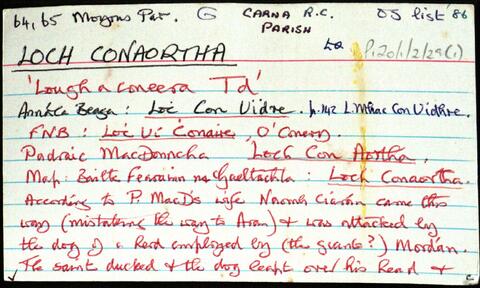 64, 65 Morgons Par. G CARNA R.C. PARISH OS list '86
LOCH CONAORTHA La P120/1/2/29(1)
'Lough a coneera Td'
Annála Beaga: Loc Con Uidre. p.142 L. Mhac Con Uidhre.
FNB: Loc Uí Conaire, O'Conery.
Padraic MacDonncha Loch Con Aortha.
Map: Bailte Fearainn na Gaeltachta: Loch Conaortha.
According to P. MacD's wife Naomh Ciarán came this
way (mistaking the way to Aran) & was attacked by
the dog of a Herd employed by (the giants?) Mordán.
The saint ducked & the dog leapt over his head &